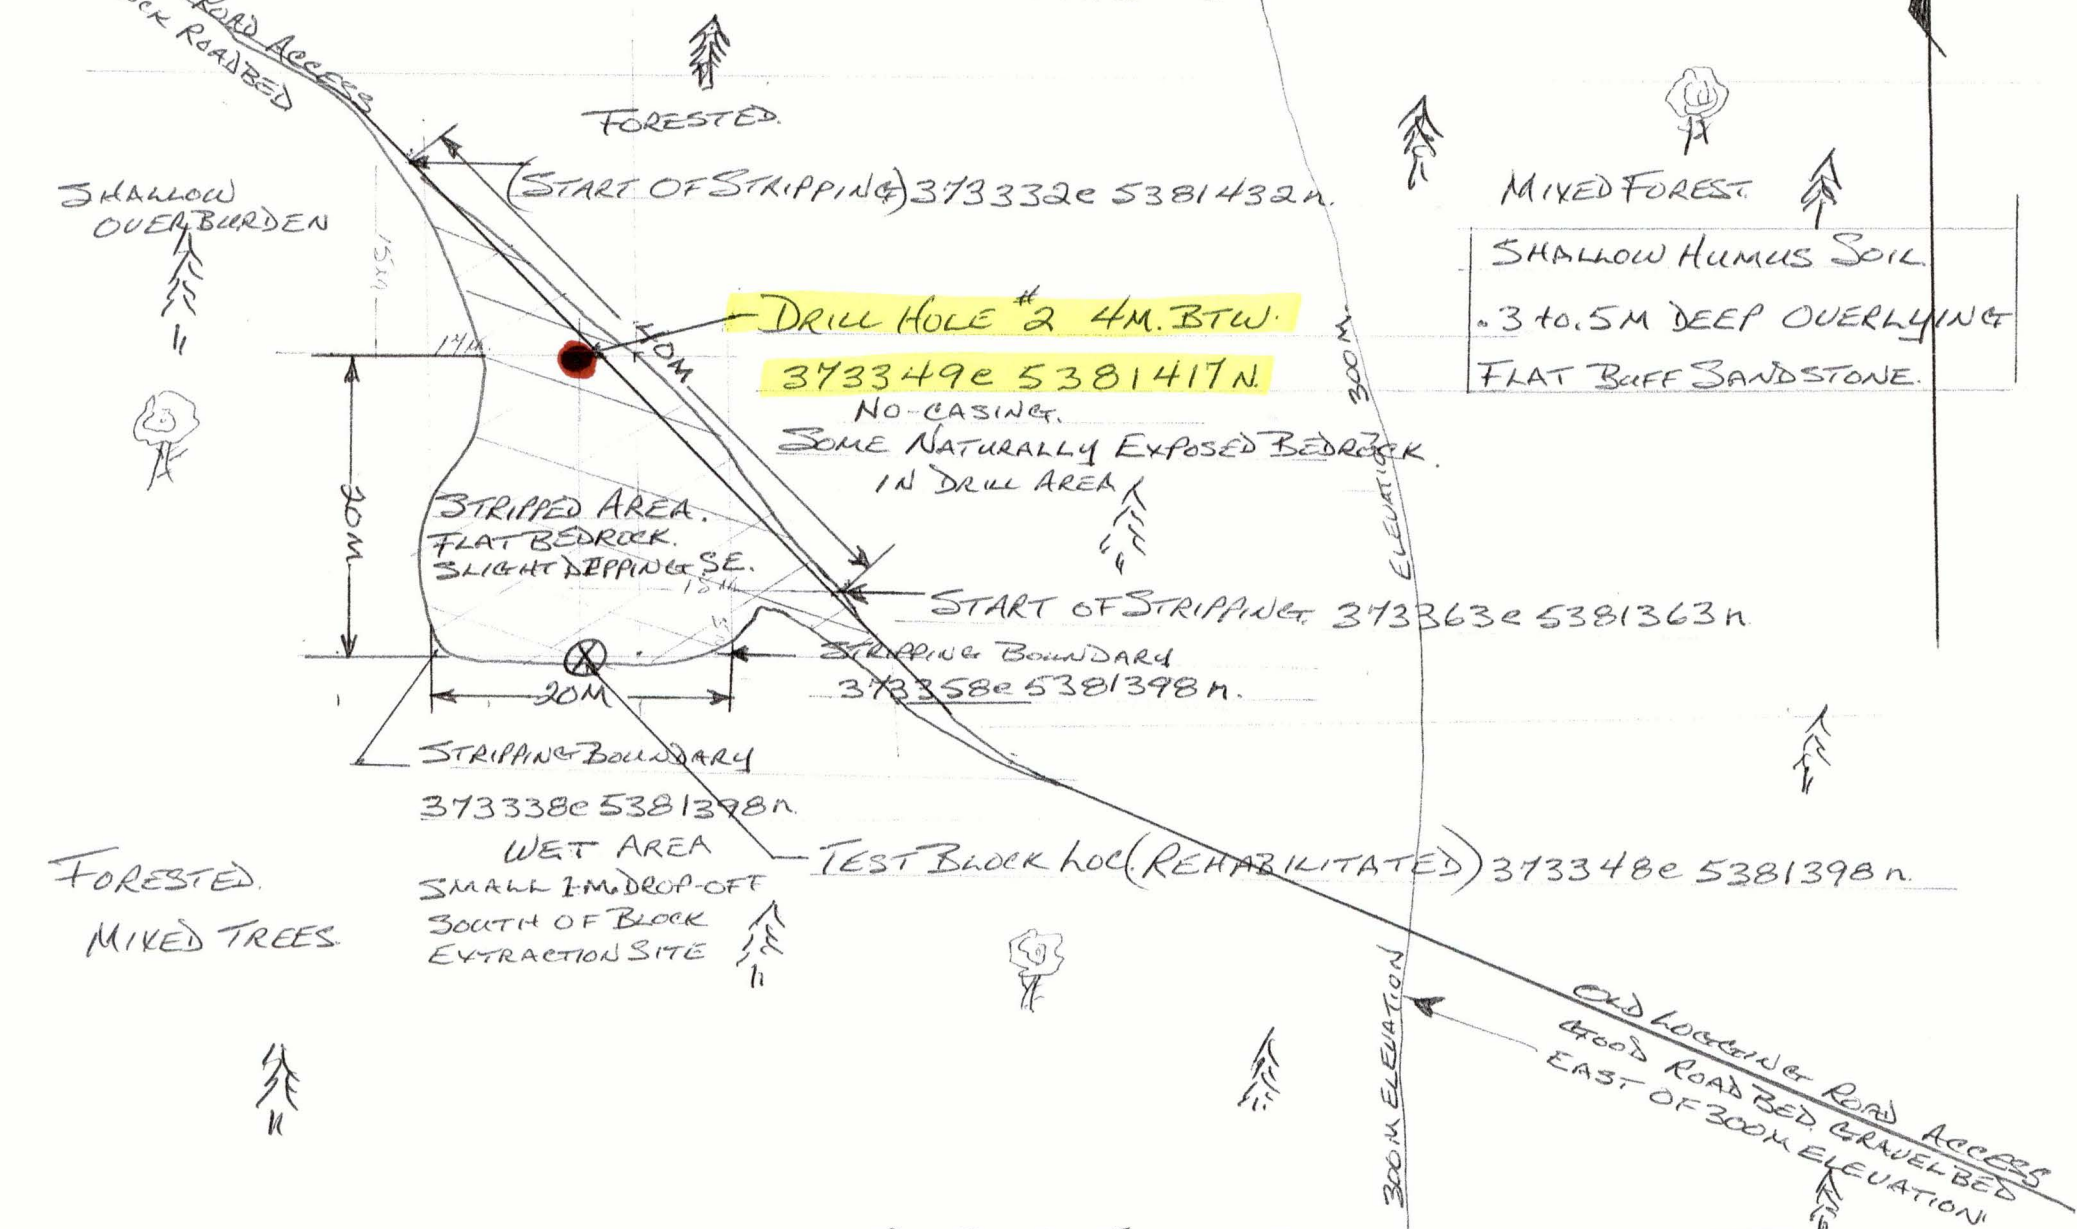 ROAD ACCESS
ROADBED
FORESTED.
(START OF STRIPPING) 373332e 5381432n.
SHALLOW
OVERBURDEN
15M
MIXED FOREST.
SHALLOW HUMUS SOIL
.3 to .5M DEEP OVERLYING
FLAT BUFF SANDSTONE.
DRILL HOLE #2 4M. BTW.
373349e 5381417N.
NO-CASING.
SOME NATURALLY EXPOSED BEDROCK.
IN DRILL AREA
40M
300M.
ELEVATION
20M
STRIPPED AREA.
FLAT BEDROCK.
SLIGHT DIPPING SE.
START OF STRIPPING. 373363e 5381363n
STRIPPING BOUNDARY
373358e 5381398n.
20M
STRIPPING BOUNDARY
373338e 5381398n.
WET AREA
SMALL 1M. DROP-OFF
SOUTH OF BLOCK
EXTRACTION SITE
TEST BLOCK LOC. (REHABILITATED) 373348e 5381398n.
FORESTED.
MIXED TREES.
300M ELEVATION
OLD LOGGING ROAD ACCESS
GOOD ROAD BED. GRAVEL BED
EAST OF 300M ELEVATION